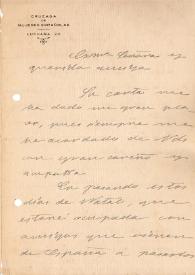 CRUZADA
DE
MUJERES ESPAÑOLAS
querida amiga
Su carta me
ha dado un gran pla-
cer, pues siempre me
he acordado de Vds
con gran cariño y
simpatía.
En pasando estos
días de Natal, que
estaré ocupada con
amigos que vienen
de España a pasarlos